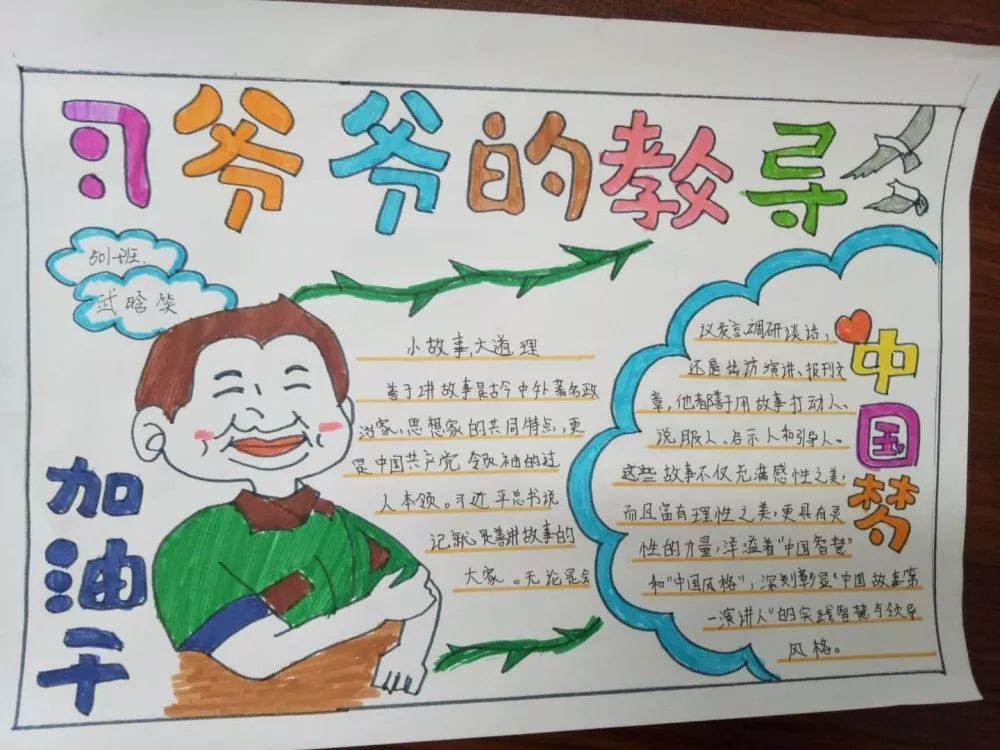 习爷爷的教导
301班.
武晗笑
加油干
小故事,大道理
善于讲故事是古今中外著名政
治家、思想家的共同特点,更
是中国共产党领袖的过
人本领。习近平总书说
记就是善讲故事的
大家。无论是会
议发言、调研谈话,
还是出访演讲、报刊文
章,他都善于用故事打动人、
说服人、启示人和引导人。
这些故事不仅充满感性之美,
而且富有理性之美,更具有灵
性的力量,洋溢着“中国智慧”
和“中国风格”,深刻彰显“中国故事第
一演讲人”的实践智慧与领导
风格。
中国梦